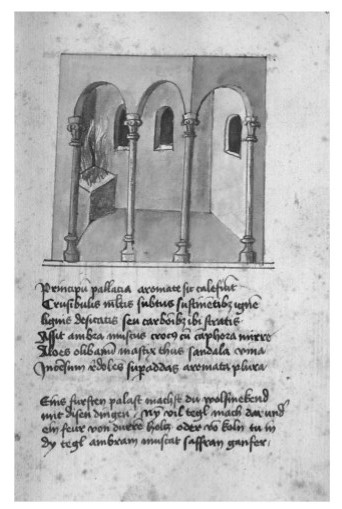 Principum pallacia aromate sic calefiant
Crusibulis multis subtus sustinetibz igne
lignis desicatis seu carboibz ibi stratis
Assit ambra muscus crocus cu camphora mirre
Aloes olibanu mastix thus sandala roma
Incesum redoles superaddas aromata plura
Eins fursten palast machst du wolsmekend
mit disen dingen wy vil tegl mach dar und
ein feur von durre holtz oder vo koln tu in
dy tegl ambram muscat saffran ganfer